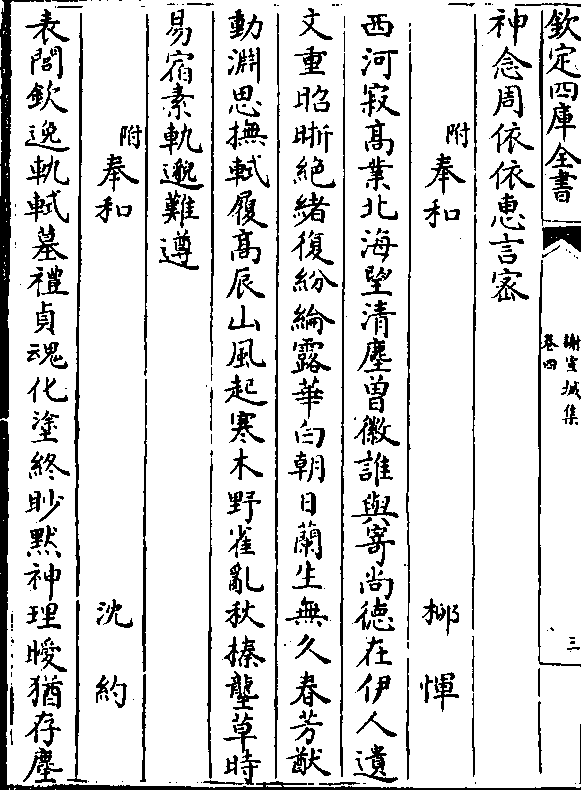 欽定四庫全書
謝宣城集
卷四
三
神念周依依惠言密
附奉和
柳惲
西河寂高業北海望清塵曾徽誰與寄尚德在伊人遺
文重昭晣絶緒復紛綸露華白朝日蘭生無久春芳猷
動淵思撫軾履高辰山風起寒木野雀亂秋榛壟草時
易宿素軌邈難遵
附奉和
沈約
表閭欽逸軌軾墓禮貞魂化塗終眇黙神理曖猶存塵